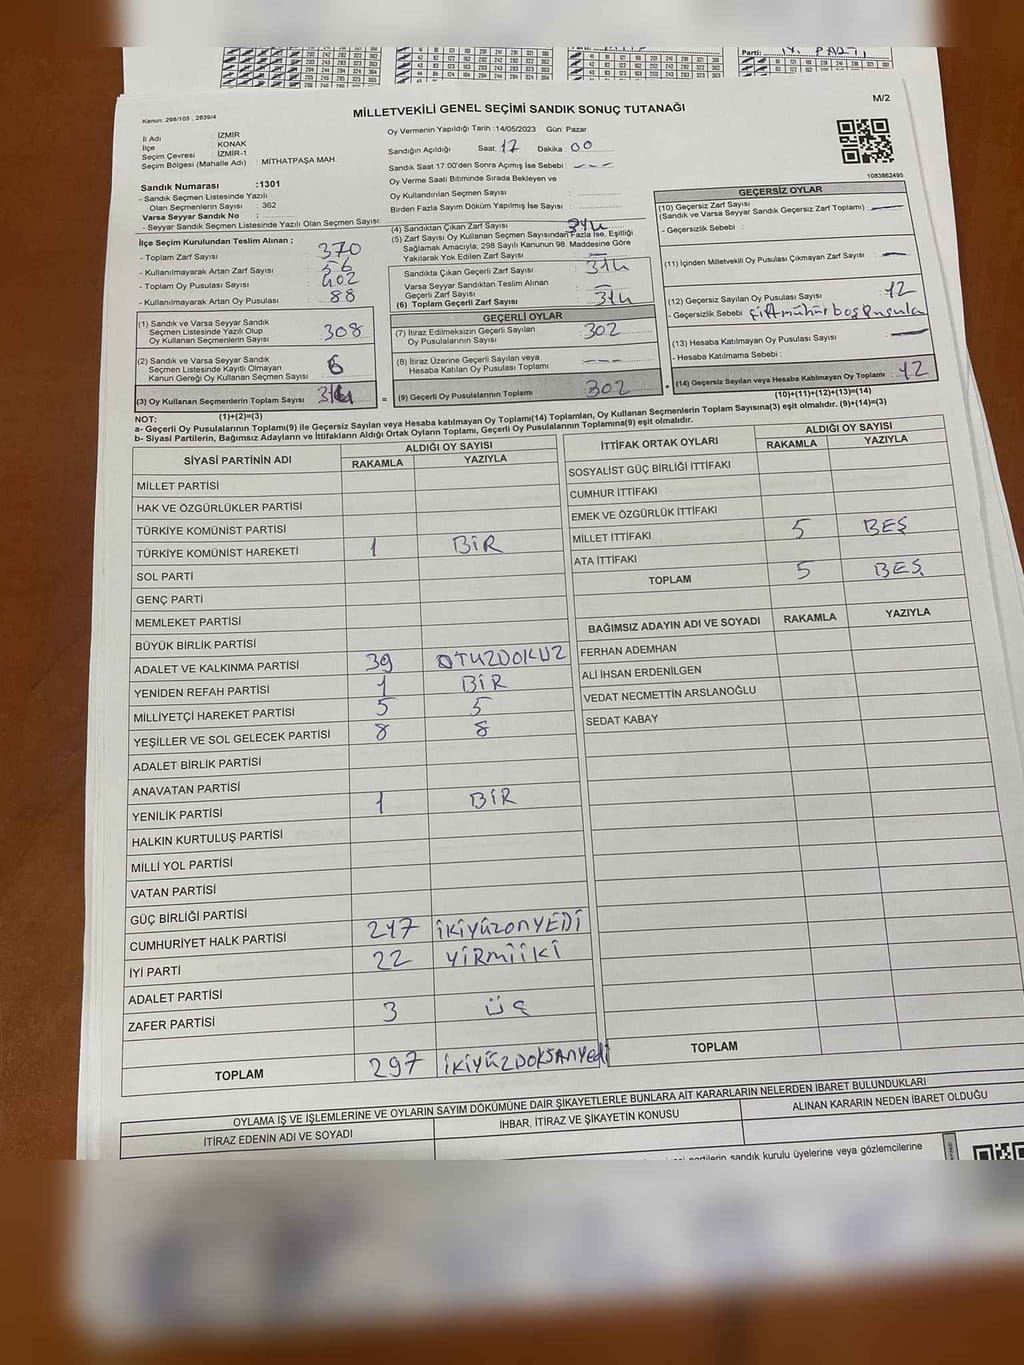 Parti: İYİ PARTİ
Kanun: 298/105 , 2839/4
MİLLETVEKİLİ GENEL SEÇİMİ SANDIK SONUÇ TUTANAĞI
M/2
İl Adı : İZMİR
İlçe : KONAK
Seçim Çevresi : İZMİR-1
Seçim Bölgesi (Mahalle Adı) : MİTHATPAŞA MAH.
Sandık Numarası :1301
- Sandık Seçmen Listesinde Yazılı
Olan Seçmenlerin Sayısı : 362
Varsa Seyyar Sandık No :
- Seyyar Sandık Seçmen Listesinde Yazılı Olan Seçmen Sayısı:
Oy Vermenin Yapıldığı Tarih :14/05/2023 Gün: Pazar
Sandığın Açıldığı Saat: 17 Dakika 00
Sandık Saat 17:00'den Sonra Açılmış İse Sebebi :
Oy Verme Saati Bitiminde Sırada Bekleyen ve
Oy Kullandırılan Seçmen Sayısı :
Birden Fazla Sayım Döküm Yapılmış İse Sayısı :
1083862495
İlçe Seçim Kurulundan Teslim Alınan ;
- Toplam Zarf Sayısı : 370
- Kullanılmayarak Artan Zarf Sayısı : 56
- Toplam Oy Pusulası Sayısı : 402
- Kullanılmayarak Artan Oy Pusulası : 88
(1) Sandık ve Varsa Seyyar Sandık
Seçmen Listesinde Yazılı Olup
Oy Kullanan Seçmenlerin Sayısı : 308
(2) Sandık ve Varsa Seyyar Sandık
Seçmen Listesinde Kayıtlı Olmayan
Kanun Gereği Oy Kullanan Seçmen Sayısı : 6
(3) Oy Kullanan Seçmenlerin Toplam Sayısı : 314
(1)+(2)=(3)
(4) Sandıktan Çıkan Zarf Sayısı : 314
(5) Zarf Sayısı Oy Kullanan Seçmen Sayısından Fazla İse, Eşitliği
Sağlamak Amacıyla, 298 Sayılı Kanunun 98. Maddesine Göre
Yakılarak Yok Edilen Zarf Sayısı :
Sandıkta Çıkan Geçerli Zarf Sayısı : 314
Varsa Seyyar Sandıktan Teslim Alınan
Geçerli Zarf Sayısı :
(6) Toplam Geçerli Zarf Sayısı : 314
GEÇERLİ OYLAR
(7) İtiraz Edilmeksizin Geçerli Sayılan
Oy Pusulalarının Sayısı : 302
(8) İtiraz Üzerine Geçerli Sayılan veya
Hesaba Katılan Oy Pusulası Toplamı :
= (9) Geçerli Oy Pusulalarının Toplamı : 302 +
GEÇERSİZ OYLAR
(10) Geçersiz Zarf Sayısı
(Sandık ve Varsa Seyyar Sandık Geçersiz Zarf Toplamı) :
- Geçersizlik Sebebi :
(11) İçinden Milletvekili Oy Pusulası Çıkmayan Zarf Sayısı :
(12) Geçersiz Sayılan Oy Pusulası Sayısı : 12
- Geçersizlik Sebebi : çift mühür boş pusula
(13) Hesaba Katılmayan Oy Pusulası Sayısı :
- Hesaba Katılmama Sebebi :
(14) Geçersiz Sayılan veya Hesaba Katılmayan Oy Toplamı : 12
(10)+(11)+(12)+(13)=(14)
NOT:
a- Geçerli Oy Pusulalarının Toplamı(9) ile Geçersiz Sayılan veya Hesaba katılmayan Oy Toplamı(14) Toplamları, Oy Kullanan Seçmenlerin Toplam Sayısına(3) eşit olmalıdır. (9)+(14)=(3)
b- Siyasi Partilerin, Bağımsız Adayların ve İttifakların Aldığı Ortak Oyların Toplamı, Geçerli Oy Pusulalarının Toplamına(9) eşit olmalıdır.
SİYASİ PARTİNİN ADI ALDIĞI OY SAYISI
RAKAMLA YAZIYLA
MİLLET PARTİSİ
HAK VE ÖZGÜRLÜKLER PARTİSİ
TÜRKİYE KOMÜNİST PARTİSİ
TÜRKİYE KOMÜNİST HAREKETİ 1 BİR
SOL PARTİ
GENÇ PARTİ
MEMLEKET PARTİSİ
BÜYÜK BİRLİK PARTİSİ
ADALET VE KALKINMA PARTİSİ 39 OTUZDOKUZ
YENİDEN REFAH PARTİSİ 1 BİR
MİLLİYETÇİ HAREKET PARTİSİ 5 5
YEŞİLLER VE SOL GELECEK PARTİSİ 8 8
ADALET BİRLİK PARTİSİ
ANAVATAN PARTİSİ
YENİLİK PARTİSİ 1 BİR
HALKIN KURTULUŞ PARTİSİ
MİLLİ YOL PARTİSİ
VATAN PARTİSİ
GÜÇ BİRLİĞİ PARTİSİ
CUMHURİYET HALK PARTİSİ 217 İKİYÜZONYEDİ
İYİ PARTİ 22 YİRMİİKİ
ADALET PARTİSİ
ZAFER PARTİSİ 3 ÜÇ
TOPLAM 297 İKİYÜZDOKSANYEDİ
İTTİFAK ORTAK OYLARI ALDIĞI OY SAYISI
RAKAMLA YAZIYLA
SOSYALİST GÜÇ BİRLİĞİ İTTİFAKI
CUMHUR İTTİFAKI
EMEK VE ÖZGÜRLÜK İTTİFAKI
MİLLET İTTİFAKI 5 BEŞ
ATA İTTİFAKI
TOPLAM 5 BEŞ
BAĞIMSIZ ADAYIN ADI VE SOYADI RAKAMLA YAZIYLA
FERHAN ADEMHAN
ALİ İHSAN ERDENİLGEN
VEDAT NECMETTİN ARSLANOĞLU
SEDAT KABAY
TOPLAM
OYLAMA İŞ VE İŞLEMLERİNE VE OYLARIN SAYIM DÖKÜMÜNE DAİR ŞİKAYETLERLE BUNLARA AİT KARARLARIN NELERDEN İBARET BULUNDUKLARI
İTİRAZ EDENİN ADI VE SOYADI İHBAR, İTİRAZ VE ŞİKAYETİN KONUSU ALINAN KARARIN NEDEN İBARET OLDUĞU
partilerin sandık kurulu üyelerine veya gözlemcilerine